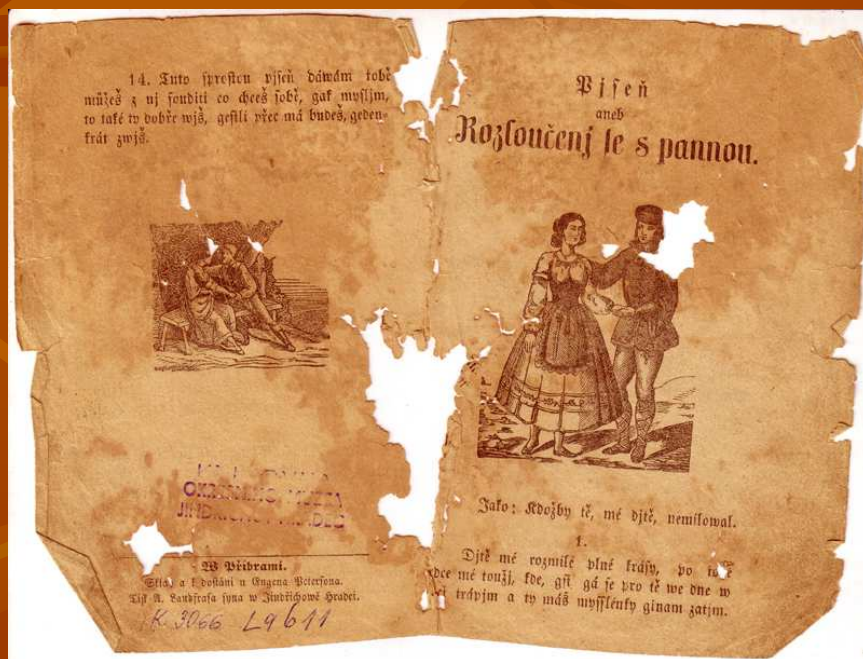 14. Tuto sprostou pjseň dáwám tobě
můžeš z nj souditi co chceš sobě, gak mysljm,
to také ty dobře wjš, gestli přec má budeš, geden-
krát zwjš.
OKRESNÍHO MUZEA
JINDŘICHŮV HRADEC
W Přibrami.
a k dostání u Eugena Petersona.
Tisk A. Landfrasa syna w Jindřichowě Hradci.
K 3066 L9611
Pjseň
aneb
Rozloučenj se s pannou.
Jako: Kdožby tě, mé djtě, nemilowal.
1.
Djtě mé rozmilé plné krásy, po tobě
dce mé toužj, kde, gsi gá se pro tě we dne w
ci trápjm a ty máš mysslénky ginam zatjm.